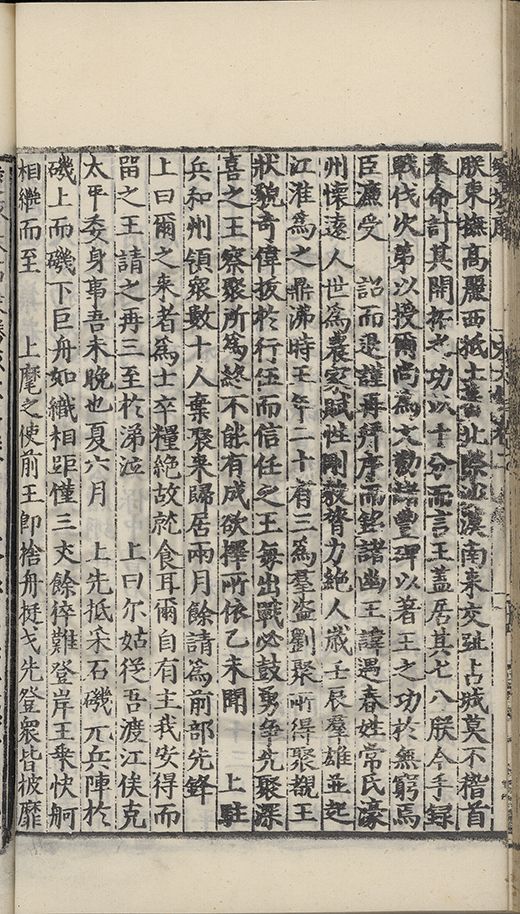 朕東撫高麗西抵土蕃北際沙漠南来交趾占城莫不稽首
奉命計其開拓之功以十分而言王盖居其七八朕今手録
戰伐次苐以授爾尚為文勒諸豐碑以著王之功於無窮焉
臣濂受　詔而退謹再拜序而銘諸幽王諱遇春姓常氏濠
州懷遠人世為農家賦性剛毅膂力絶人歳壬辰羣雄並起
江淮為之鼎沸時王年二十有三為羣盗劉聚所得聚覩王
狀貌奇偉拔於行伍而信任之王每出戰必鼓勇争先聚深
喜之王察聚所為終不能有成欲擇所依乙未聞　上駐
兵和州領衆數十人棄聚来歸居兩月餘請為前部先鋒
上曰爾之来者為士卒糧絶故就食耳爾自有主我安得而
畱之王請之再三至於涕泣　上曰尔姑從吾渡江俟克
太平委身事吾未晩也夏六月　上先抵采石磯元兵陣於
磯上而磯下巨舟如織相距僅三丈餘倅難登岸王乗快舸
相継而至　上麾之使前王即捨舟挺戈先登衆皆披靡